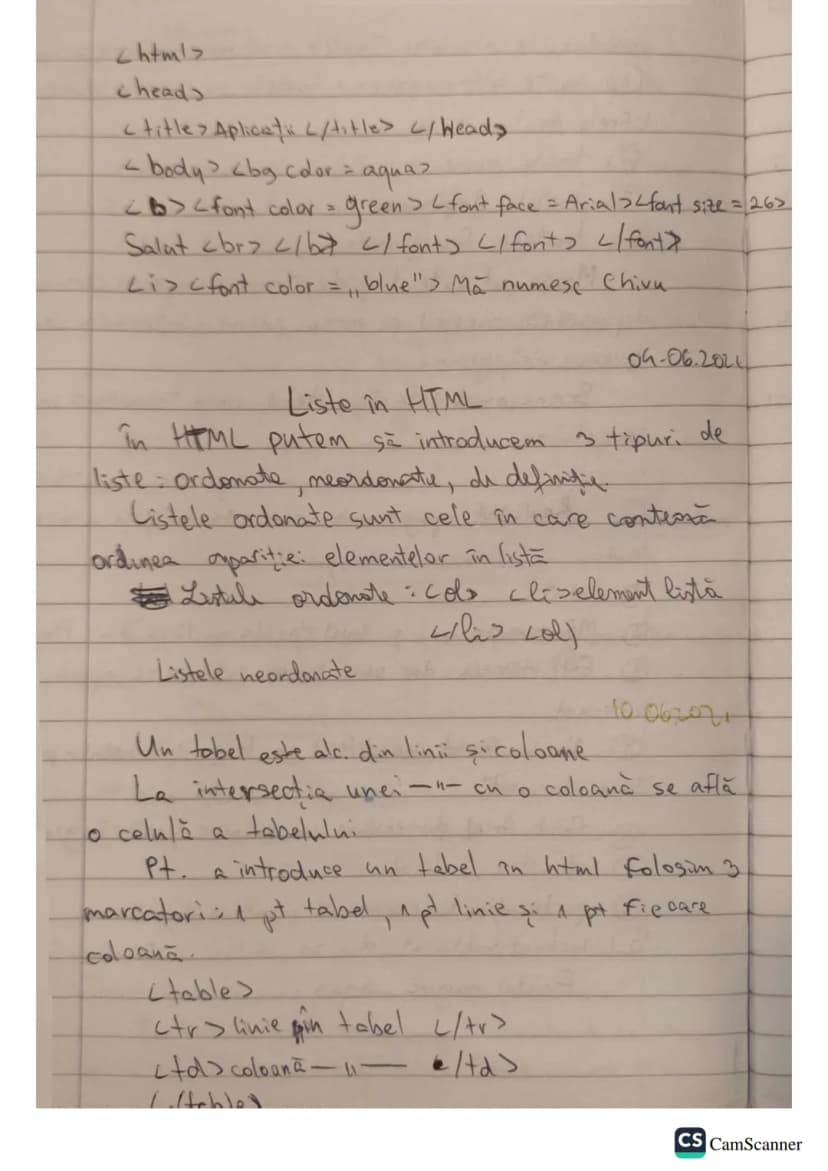 <html>
<head>
<title> Aplicații </title> </head>
<body> <bg color = aqua>
<b> <font color = green> <font face = Arial> <font size = 26>
Salut <br> </b> </font> </font> </font>
<i> <font color = „blue"> Mă numesc Chivu
04-06.2021
Liste în HTML
în HTML putem să introducem 3 tipuri de
liste: ordonate, neordonate, de definiție.
Listele ordonate sunt cele în care contează
ordinea apariției elementelor în listă
Listele ordonate : <ol> <li>element listă
</li> <ol>
Listele neordonate
10.06.2021
Un tabel este alc. din linii și coloane
La intersecția unei —"— cu o coloană se află
o celulă a tabelului.
Pt. a introduce un tabel în html folosim 3
marcatori: 1 pt tabel, 1 pt linie și 1 pt fiecare
coloană.
<table>
<tr> linie pin tabel </tr>
<td> coloană —"— </td>
</table>
CS CamScanner